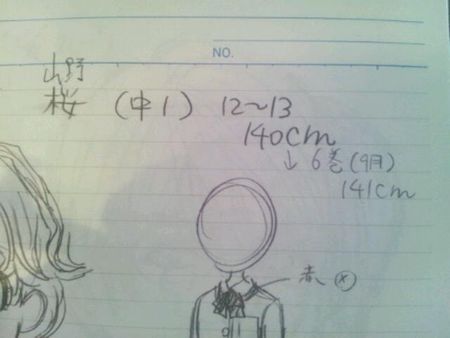 NO.
山野
桜 (中1) 12～13
140cm
↓ 6巻(9月)
141cm
赤い